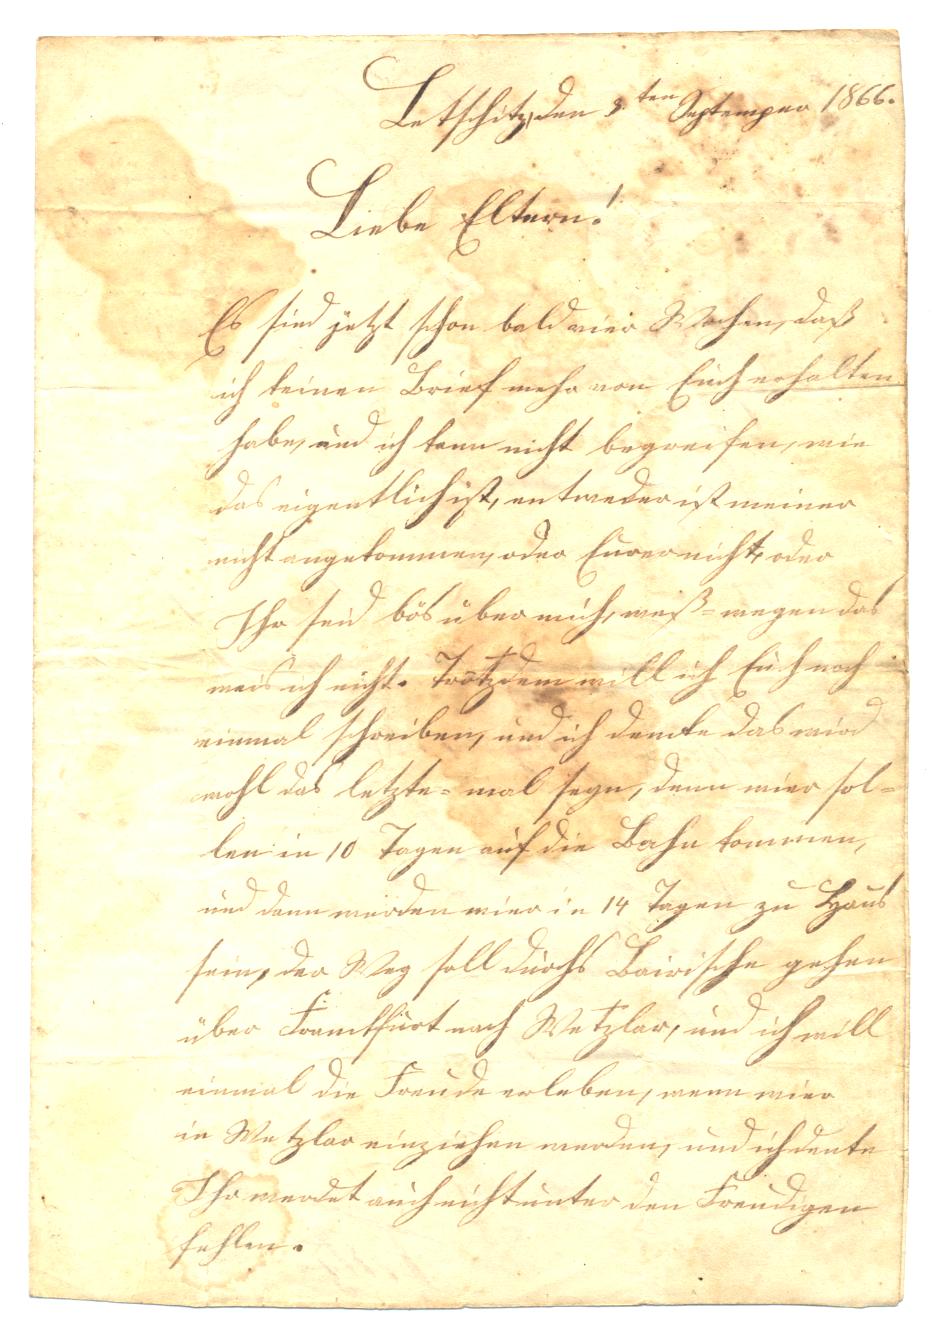 Letschitz, den 3ten Septemper 1866.
Liebe Eltern!
Es sind jetzt schon bald vier Wochen, daß
ich keinen Brief mehr von Euch erhalten
habe, und ich kann nicht begreifen, wie
das eigentlich ist, entweder ist meiner
nicht angekommen, oder Eurer nicht, oder
Ihr seid bös über mich, weß-wegen das
weis ich nicht. Trotzdem will ich Euch noch
einmal schreiben, und ich dencke das wird
wohl das letzte-mal seyn, denn wier sol-
len in 10 Tagen auf die Bahn kommen,
und dann werden wier in 14 Tagen zu Haus
sein, der Weg soll durchs Bairische gehen
über Franckfurt nach Wetzlar, und ich will
einmal die Freude erleben, wenn wier
in Wetzlar einziehen werden, und ich denke
Ihr werdet auch nicht unter den Freudigen
fehlen.